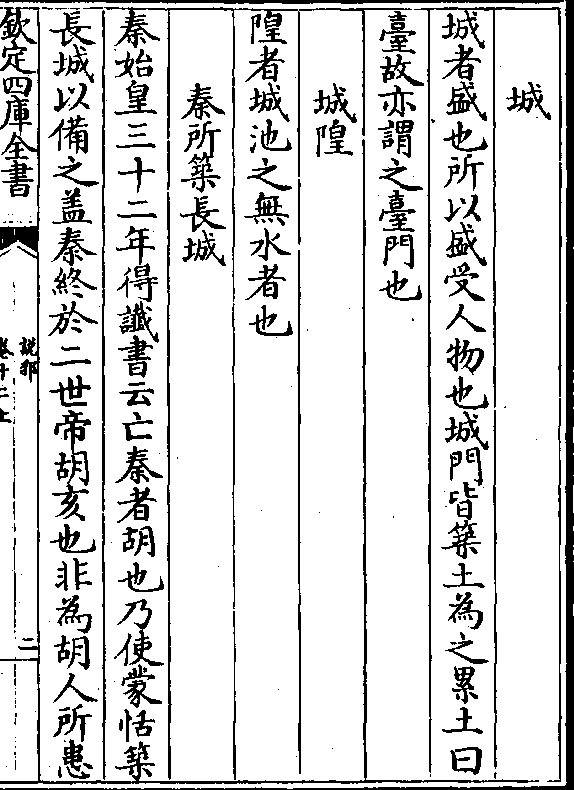 城
城者盛也所以盛受人物也城門皆築土為之累土曰
臺故亦謂之臺門也
城隍
隍者城池之無水者也
秦所築長城
秦始皇三十二年得讖書云亡秦者胡也乃使蒙恬築
長城以備之盖秦終於二世帝胡亥也非為胡人所患
欽定四庫全書
說郛
卷十二上
二